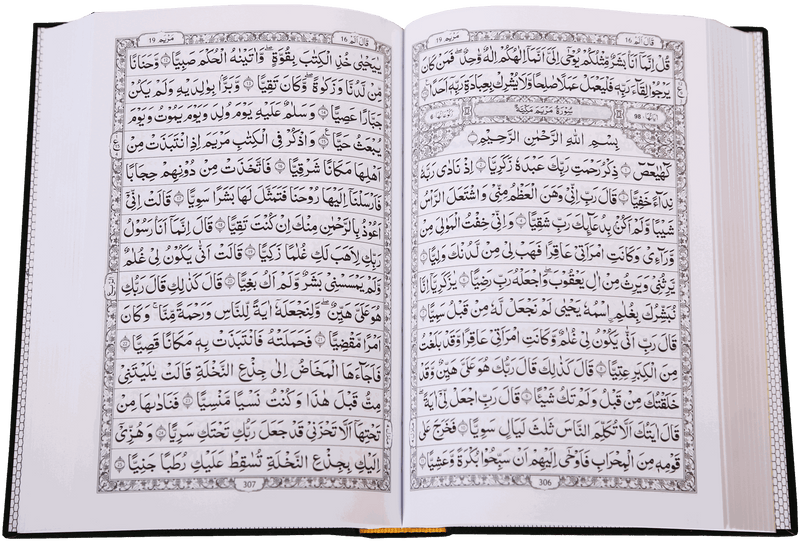 قَالَ اَلَمْ 16
مَرْيَم 19
قُلْ اِنَّمَاۤ اَنَا بَشَرٌ مِّثْلُكُمْ يُوْحٰۤى اِلَىَّ اَنَّمَاۤ اِلٰهُكُمْ اِلٰهٌ وَّاحِدٌ ۚ فَمَنْ كَانَ
يَرْجُوْا لِقَآءَ رَبِّهٖ فَلْيَعْمَلْ عَمَلًا صَالِحًا وَّلَا يُشْرِكْ بِعِبَادَةِ رَبِّهٖۤ اَحَدًا
اٰيَاتُهَا 98 سُوْرَةُ مَرْيَمَ مَكِّيَّةٌ رُكُوْعَاتُهَا 6
بِسْمِ اللّٰهِ الرَّحْمٰنِ الرَّحِيْمِ
كٓهٰيٰعٓصٓ ذِكْرُ رَحْمَتِ رَبِّكَ عَبْدَهٗ زَكَرِيَّا اِذْ نَادٰى رَبَّهٗ
نِدَآءً خَفِيًّا قَالَ رَبِّ اِنِّىْ وَهَنَ الْعَظْمُ مِنِّىْ وَاشْتَعَلَ الرَّاْسُ
شَيْبًا وَّلَمْ اَكُنْۢ بِدُعَآئِكَ رَبِّ شَقِيًّا وَاِنِّىْ خِفْتُ الْمَوَالِىَ مِنْ
وَّرَآءِىْ وَكَانَتِ امْرَاَتِىْ عَاقِرًا فَهَبْ لِىْ مِنْ لَّدُنْكَ وَلِيًّا
يَّرِثُنِىْ وَيَرِثُ مِنْ اٰلِ يَعْقُوْبَ ۖ وَاجْعَلْهُ رَبِّ رَضِيًّا يٰزَكَرِيَّاۤ اِنَّا
نُبَشِّرُكَ بِغُلٰمِ ۣاسْمُهٗ يَحْيٰى لَمْ نَجْعَلْ لَّهٗ مِنْ قَبْلُ سَمِيًّا
قَالَ رَبِّ اَنّٰى يَكُوْنُ لِىْ غُلٰمٌ وَّكَانَتِ امْرَاَتِىْ عَاقِرًا وَّقَدْ بَلَغْتُ
مِنَ الْكِبَرِ عِتِيًّا قَالَ كَذٰلِكَ ۚ قَالَ رَبُّكَ هُوَ عَلَىَّ هَيِّنٌ وَّقَدْ
خَلَقْتُكَ مِنْ قَبْلُ وَلَمْ تَكُ شَيْئًا قَالَ رَبِّ اجْعَلْ لِّىْۤ اٰيَةً ؕ
قَالَ اٰيَتُكَ اَلَّا تُكَلِّمَ النَّاسَ ثَلٰثَ لَيَالٍ سَوِيًّا فَخَرَجَ عَلٰى
قَوْمِهٖ مِنَ الْمِحْرَابِ فَاَوْحٰۤى اِلَيْهِمْ اَنْ سَبِّحُوْا بُكْرَةً وَّعَشِيًّا
306
قَالَ اَلَمْ 16
مَرْيَم 19
يٰيَحْيٰى خُذِ الْكِتٰبَ بِقُوَّةٍ ؕ وَاٰتَيْنٰهُ الْحُكْمَ صَبِيًّا وَّحَنَانًا
مِّنْ لَّدُنَّا وَزَكٰوةً ؕ وَكَانَ تَقِيًّا وَّبَرًّۢا بِوَالِدَيْهِ وَلَمْ يَكُنْ
جَبَّارًا عَصِيًّا وَسَلٰمٌ عَلَيْهِ يَوْمَ وُلِدَ وَيَوْمَ يَمُوْتُ وَيَوْمَ
يُبْعَثُ حَيًّا وَاذْكُرْ فِى الْكِتٰبِ مَرْيَمَ ۘ اِذِ انْتَبَذَتْ مِنْ
اَهْلِهَا مَكَانًا شَرْقِيًّا فَاتَّخَذَتْ مِنْ دُوْنِهِمْ حِجَابًا
فَاَرْسَلْنَاۤ اِلَيْهَا رُوْحَنَا فَتَمَثَّلَ لَهَا بَشَرًا سَوِيًّا قَالَتْ اِنِّىْۤ
اَعُوْذُ بِالرَّحْمٰنِ مِنْكَ اِنْ كُنْتَ تَقِيًّا قَالَ اِنَّمَاۤ اَنَا رَسُوْلُ
رَبِّكِ ۖ لِاَهَبَ لَكِ غُلٰمًا زَكِيًّا قَالَتْ اَنّٰى يَكُوْنُ لِىْ غُلٰمٌ
وَّلَمْ يَمْسَسْنِىْ بَشَرٌ وَّلَمْ اَكُ بَغِيًّا قَالَ كَذٰلِكِ ۚ قَالَ رَبُّكِ
هُوَ عَلَىَّ هَيِّنٌ ۚ وَلِنَجْعَلَهٗۤ اٰيَةً لِّلنَّاسِ وَرَحْمَةً مِّنَّا ۚ وَكَانَ
اَمْرًا مَّقْضِيًّا فَحَمَلَتْهُ فَانْتَبَذَتْ بِهٖ مَكَانًا قَصِيًّا
فَاَجَآءَهَا الْمَخَاضُ اِلٰى جِذْعِ النَّخْلَةِ ۚ قَالَتْ يٰلَيْتَنِىْ
مِتُّ قَبْلَ هٰذَا وَكُنْتُ نَسْيًا مَّنْسِيًّا فَنَادٰىهَا مِنْ
تَحْتِهَاۤ اَلَّا تَحْزَنِىْ قَدْ جَعَلَ رَبُّكِ تَحْتَكِ سَرِيًّا وَهُزِّىْۤ
اِلَيْكِ بِجِذْعِ النَّخْلَةِ تُسٰقِطْ عَلَيْكِ رُطَبًا جَنِيًّا
307